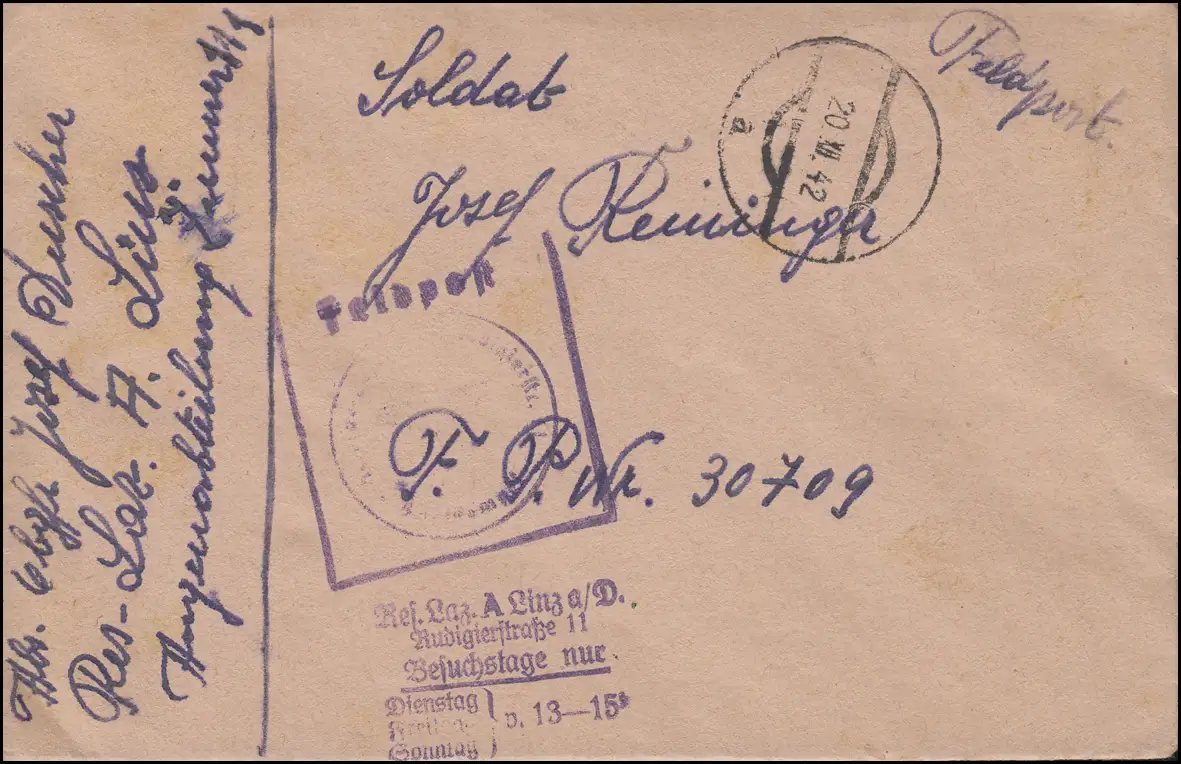 Feldpost.
Soldat
Josef Reininger
F. P. Nr. 30709
a
20.XII.42
Feldpost
Res. Laz. A Linz a/D.
Rudigierstraße 11
Besuchstage nur
Dienstag
Freitag
Sonntag
v. 13—15
Abs. Obgfr. Josef
Res-Laz. A. Linz
Augenabteilung Zimmer